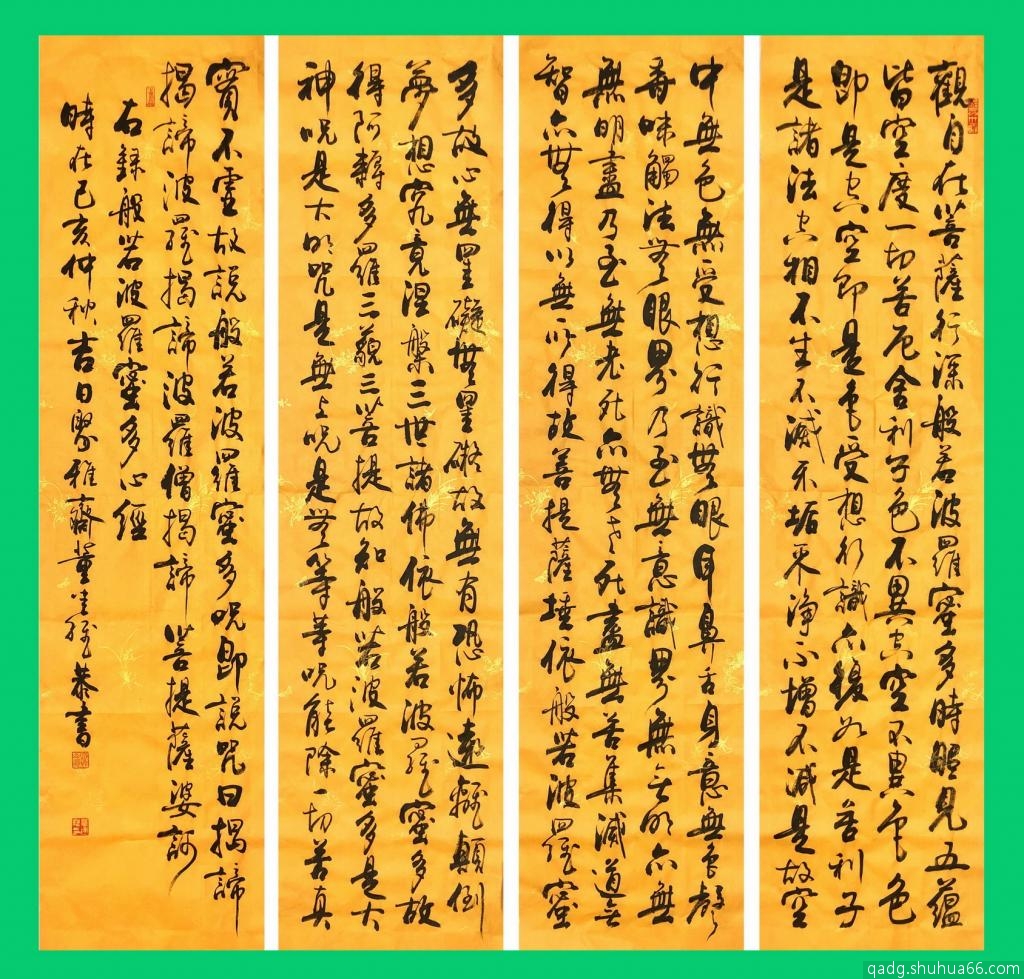 觀自在菩薩行深般若波羅蜜多時照見五蘊
皆空度一切苦厄舍利子色不異空空不異色色
即是空空即是色受想行識亦復如是舍利子
是諸法空相不生不滅不垢不淨不增不減是故空
中無色無受想行識無眼耳鼻舌身意無色聲
香味觸法無眼界乃至無意識界無無明亦無
無明盡乃至無老死亦無老死盡無苦集滅道無
智亦無得以無所得故菩提薩埵依般若波羅蜜
多故心無罣礙無罣礙故無有恐怖遠離顛倒
夢想究竟涅槃三世諸佛依般若波羅蜜多故
得阿耨多羅三藐三菩提故知般若波羅蜜多是大
神咒是大明咒是無上咒是無等等咒能除一切苦真
實不虛故說般若波羅蜜多呪即說咒曰揭諦
揭諦波羅揭諦波羅僧揭諦菩提薩婆訶
右錄般若波羅蜜多心經
時在己亥仲秋吉日聚雅齋董恭書
qadg.shuhua66.com